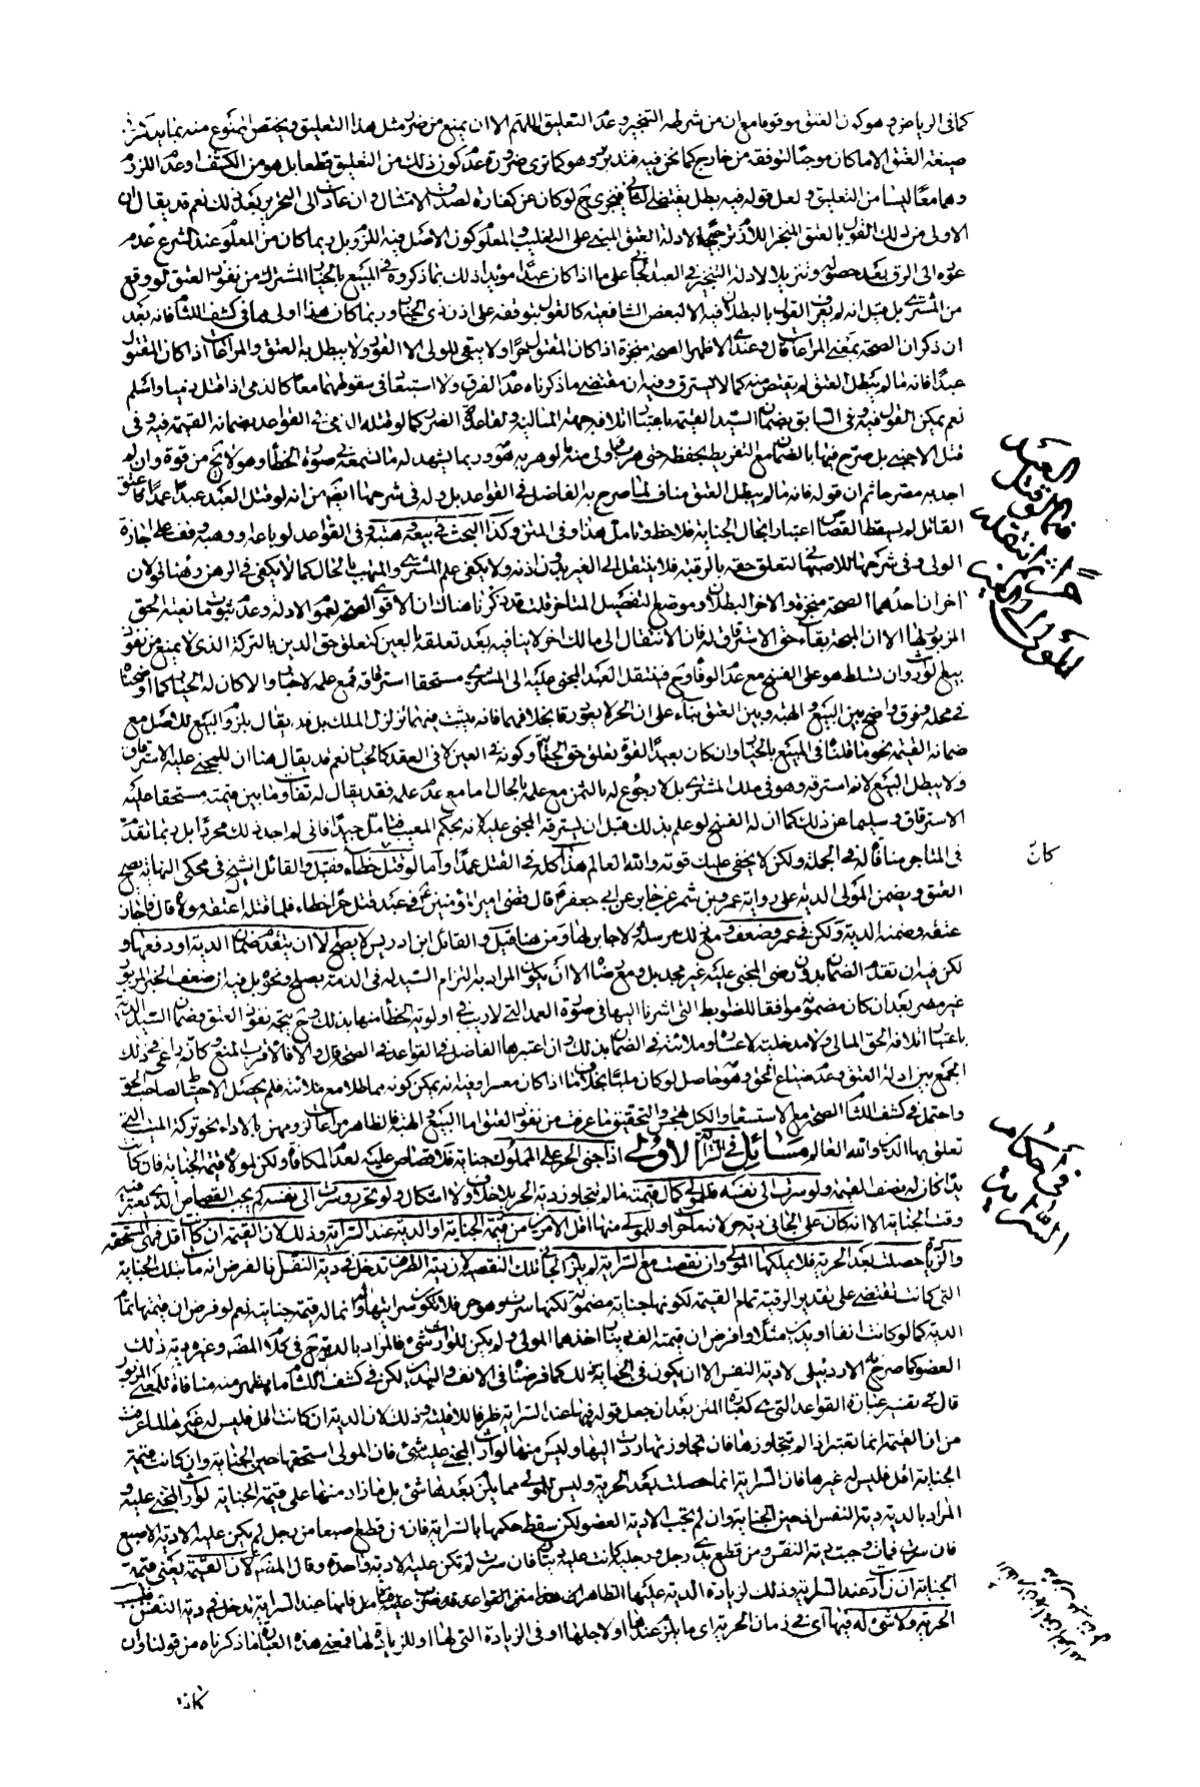 كما فى الرياض وهو كون العتق موقوفا مع ان من شرطه التنجيز وعدم التعليق اللهم الا ان يمنع من ضرر مثل هذا التعليق ويختص الممنوع منه بما يذكر فى
صيغة العتق لا ما كان موجبا لتوقفه من خارج كما نحن فيه فتدبر وهو كما ترى ضرورة عدم كون ذلك من التعليق قطعا بل هو من الكشف او عدم اللزوم
وهما معا ليسا من التعليق ولعل قوله فيه بطل يقتضى الثانى فيجزى ح لو كان عن كفارة لصدق الامتثال وان عاد الى التحرير بعد ذلك نعم قد يقال ان
الاولى من ذلك القول بالعتق المنجز اللازم ترجيحا لادلة العتق المبنى على التغليب والمعلوم كون الاصل فيه اللزوم بل ربما كان من المعلوم عند الشرع عدم
عوده الى الرق بعد حصوله وتنزيلا لادلة التخيير فى العبد الجانى على ما اذا كان عبدا مؤيدا ذلك بما ذكروه فى المبيع بالخيار المشترك من نفوذ العتق لو وقع
من المشترى بل قيل انه لم يعرف القول بالبطلان فيه الا لبعض الشافعية كالقول بتوقفه على اذن ذى الخيار وربما كان هذا اولى مما فى كشف اللثام فانه بعد
ان ذكر ان الصحة بمعنى المراعاة قال وعندى الاظهر الصحة منجزة اذا كان المقتول حرا ولا يبقى للولى الا القود ولا يبطل به العتق والمراعات اذا كان المقتول
عبدا فانه ما لم يبطل العتق لم يقتص منه كما لا يسترق وفيه ان مقتضى ما ذكرناه عدم الفرق ولا استبعاد فى سقوطهما معا كالذمى اذا قتل ذميا واسلم
نعم يمكن القول فيه وفى السابق بضمان السيد القيمة باعتبار اتلافه جهة المالية ولقاعدة الضرر كما لو قتله الذى فى القواعد ضمانه القيمة فيه وفى
قتل الاجنبى بل صرح فيها بالضمان مع التفريط بحفظه حتى هرب او لى منه ما لو هربه هو وربما يشهد له ما تسمعه فى صورة الخطا وهو لا يخ من قوة وان لم
اجد به مصرحا ثم ان قوله فانه ما لم يبطل العتق مناف لما صرح به الفاضل فى القواعد بل وله فى شرحها ايضا من انه لو قتل العبد عبدا عمدا فاعتق
القاتل لم يسقط القصاص اعتبارا بحال الجناية فلاحظ وتأمل هذا وفى المتن وكذا البحث فى بيعه وهبته وفى القواعد لو باعه او وهبه وقف على اجازة
الولى وفى شرحها للاصبهانى لتعلق حقه بالرقبة فلا ينتقل الى الغير بدون اذنه ولا يكفى علم المشترى والمتهب بالحال كما لا يكفى فى الرهن وهنا قولان
اخران احدهما الصحة منجزة والاخر البطلان وموضع التفصيل المتاجر قلت قد ذكرنا هناك ان الاقوى الصحة لعموم الادلة وعدم ثبوت مانعية الحق
المزبور لها الا ان المتجه بقاء حق الاسترقاق له فان الانتقال الى مالك اخر لا ينافيه بعد تعلقه بالعين كتعلق حق الدين بالتركة الذى لا يمنع من نفوذ
بيع الوارث وان تسلط هو على الفسخ مع عدم الوفاء وح فينتقل العبد المجنى عليه الى المشترى مستحقا استرقاقه فمع علمه لا خيار والا كان له الخيار كما اوضحناه
فى محله وفرق واضح بين البيع والهبة وبين العتق بناء على ان الحر لا يعود رقا بخلافهما فانه يثبت فيهما تزلزل الملك بل قد يقال بلزوم البيع للاصل مع
ضمانه القيمة نحو ما قلنا فى المبيع بالخيار وان كان بعيدا لقوة تعلق حق الجناية وكونه فى العين لا فى العقد كالخيار نعم قد يقال هنا ان للمجنى عليه الاسترقاق
ولا يبطل البيع لانه استرقه وهو فى ملك المشترى بل لا رجوع له بالثمن مع علمه بالحال اما مع عدم علمه فقد يقال له تفاوت ما بين قيمته مستحقا عليه
الاسترقاق وسليما عن ذلك كما ان له الفسخ لو علم بذلك قبل ان يسترقه المجنى عليه لانه بحكم المعيب فتامل جيدا فانى لم اجد ذلك محررا بل ربما تقدم
فى المتاجر منافاة له فى الجملة ولكن لا يخفى عليك قوته والله العالم هذا كله فى القتل عمدا واما لو قتل خطأ فقيل والقائل الشيخ فى محكى النهاية يصح
العتق ويضمن المولى الدية على رواية عمرو بن شمر عن جابر عن ابى جعفر ع قال قضى امير المؤمنين ع فى عبد قتل حرا خطاء فلما قتله اعتقه مولاه قال فاجاز
عتقه وضمنه الدية ولكن فى عمرو ضعف ومع ذلك مرسلة ولا جابر لها ومن هنا قيل والقائل ابن ادريس لا يصح الا ان يتقدم ضمان الدية او دفعها و
لكن فيه ان تقدم الضمان بدون رضى المجنى عليه غير مجد بل ومع رضاه الا ان يكون المراد به التزام السيد له فى الذمة بصلح ونحوه بل فيه ان ضعف الخبر المزبور
غير مضر بعد ان كان مضمونه موافقا للضوابط التى اشرنا اليها فى صورة العمد التى لا ريب فى اولوية الخطأ منها بذلك وح يتجه نفوذ العتق وضمان السيد الدية
باعتبار اتلافه الحق المالى ولا مدخلية لاعساره وملائته فى الضمان بذلك وان اعتبرها الفاضل فى القواعد فى الصحة قال والا فالاقرب المنع كانه راعى فى ذلك
الجمع بين ادلة العتق وعدم ضياع الحق وهو حاصل لو كان مليا بخلاف ما اذا كان معسرا وفيه انه يمكن كونه مماطلا مع ملائته فلم يحصل الاحتياط لصاحب الحق
واحتمل فى كشف اللثام الصحة مع الاستسعاء والكل كما ترى والتحقيق ما عرفت من نفوذ العتق اما البيع والهبة فالظاهر مراعاتهما ورهن بالاداء نحو تركة الميت التى
تعلق بها الدين والله العالم مسائل فى السراية الاولى اذا جنى الحر على المملوك جناية فلا قصاص عليه لعدم المكافاة ولكن لمولاه قيمة الجناية فان كانت
يدا كان له نصف القيمة ولو سرت الى نفسه فللمولى كمال قيمته ما لم تتجاوز دية الحر بلا خلاف ولا اشكال ولو تحرر وسرت الى نفسه لم يجب القصاص الذى يعتبر فيه
وقت الجناية الا انه كان على الجانى دية حر لانه مات حرا وللمولى منها اقل الامرين من قيمة الجناية او الدية عند السراية وذلك لان القيمة ان كانت اقل فهى المستحقة له
والزيادة حصلت بعد الحرية فلا يملكها المولى وان نقصت مع السراية لم يلزم الجانى تلك النقيصة لان دية الطرف تدخل فى دية النفس فالفرض انه مات بتلك الجناية
التى كانت تقتضى على تقدير الرقية تمام القيمة لكونها جناية مضمونة لكنها سرت وهو حر فلا تكون سرايتها له وانما له قيمة جنايته نعم لو فرض ان قيمتها تمام
الدية كما لو كانت انفا او يدين مثلا وافرض ان قيمته الف دينار اخذها المولى ولم يكن للوارث شئ فالمراد بالدية ح فى كلام المصنف وغيره دية ذلك
العضو كما صرح به الاردبيلى لا دية النفس الا ان يكون فى الجناية ذلك كما فرضنا فى الانف واليدين لكن فى كشف اللثام ما يظهر منه منافاة للمعنى المزبور
قال فى تفسير عبارة القواعد التى هى كعبارة المتن بعد ان جعل قوله فيها عند السراية ظرفا للاقلية وذلك لان الدية ان كانت اقل فليس له غيرها لما عرفت
من ان القيمة انما تعتبر اذا لم تتجاوزها فان تجاوزتها ردت اليها وليس منها لوارث المجنى عليه شئ فان المولى استحقها حين الجناية وان كانت قيمة
الجناية اقل فليس له غيرها فان السراية انما حصلت بعد الحرية وليس للمولى مما يلزم بعدها شئ بل ما زاد منها على قيمة الجناية لوارث المجنى عليه و
المراد بالدية دية النفس اذ حين الجناية وان لم تجب الا دية العضو لكن سقط حكمها بالسراية فان من قطع اصبعا من رجل لم يكن عليه الا دية الاصبع
فان سرت فمات وجبت دية النفس ومن قطع يدى رجل ورجليه كانت عليه ديتان فان سرت لم تكن عليه الا دية واحدة وقال المصنف لان القيمة يعنى قيمة
الجناية ان زادت عند السراية وذلك لزيادة الدية عليها الظاهر ان هذا متن القواعد قد ضرب عليه فتامل فانها عند السراية تدخل فى دية النفس فلسبب
الحرية ولا شئ له فيها اى فى زمان الحرية اى ما يلزم عندها او لاجلها او فى الزيادة التى لها او للزيادة لها فمعنى هذه العبارة ما ذكرناه من قولنا وان
كانت
العبد
فيما لو قتل
حرا ثم انتقله
المولى الى الغير
كان
فى احكام
السراية